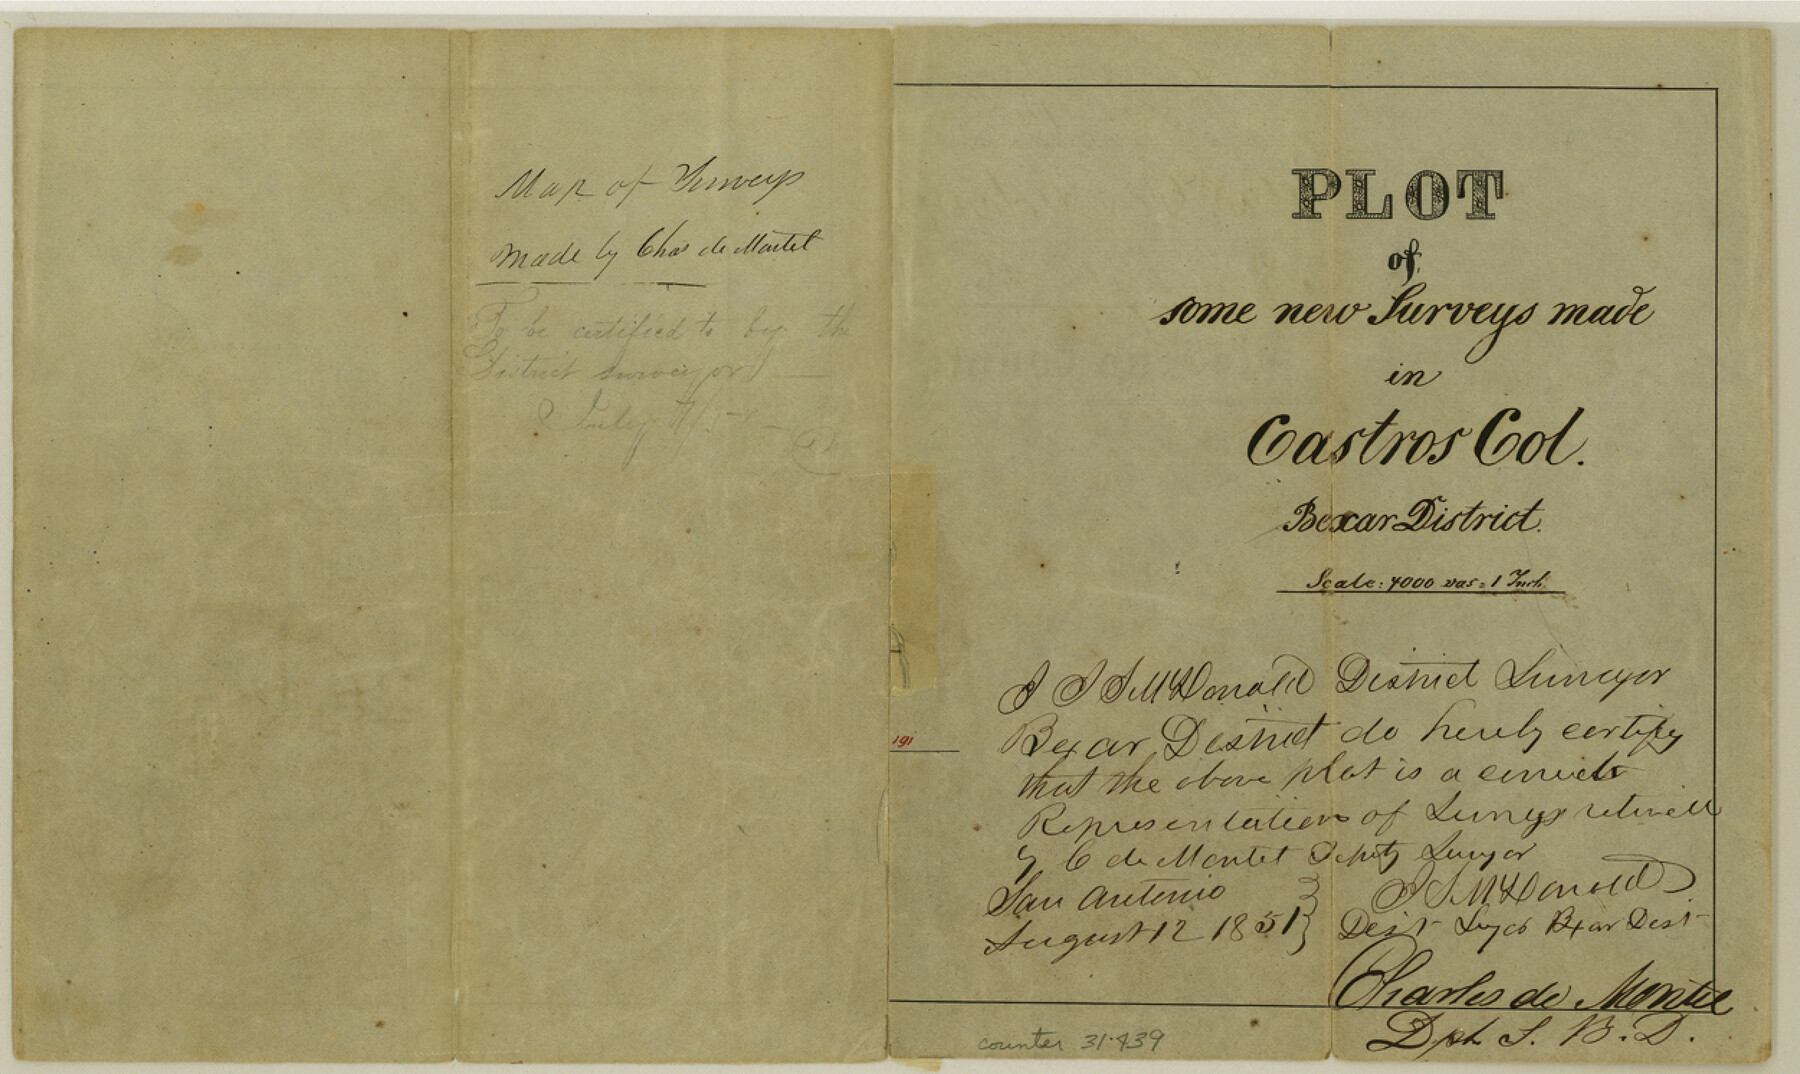 Map of Surveys
made by Chas de Montel
To be certified to by the
District surveyor
July
PLOT
of
some new Surveys made
in
Castros Col.
Bexar District.
Scale: 4000 vas = 1 Inch
191
I J S McDonald District Surveyor
Bexar District do hereby certify
that the above plot is a correct
Representation of Surveys returned
by C de Montel Deputy Surveyor
San Antonio
August 12 1851
J S McDonald
Dist Suyor Bxar Dist
Charles de Montel
Dpt. S. B. D.
counter 31439